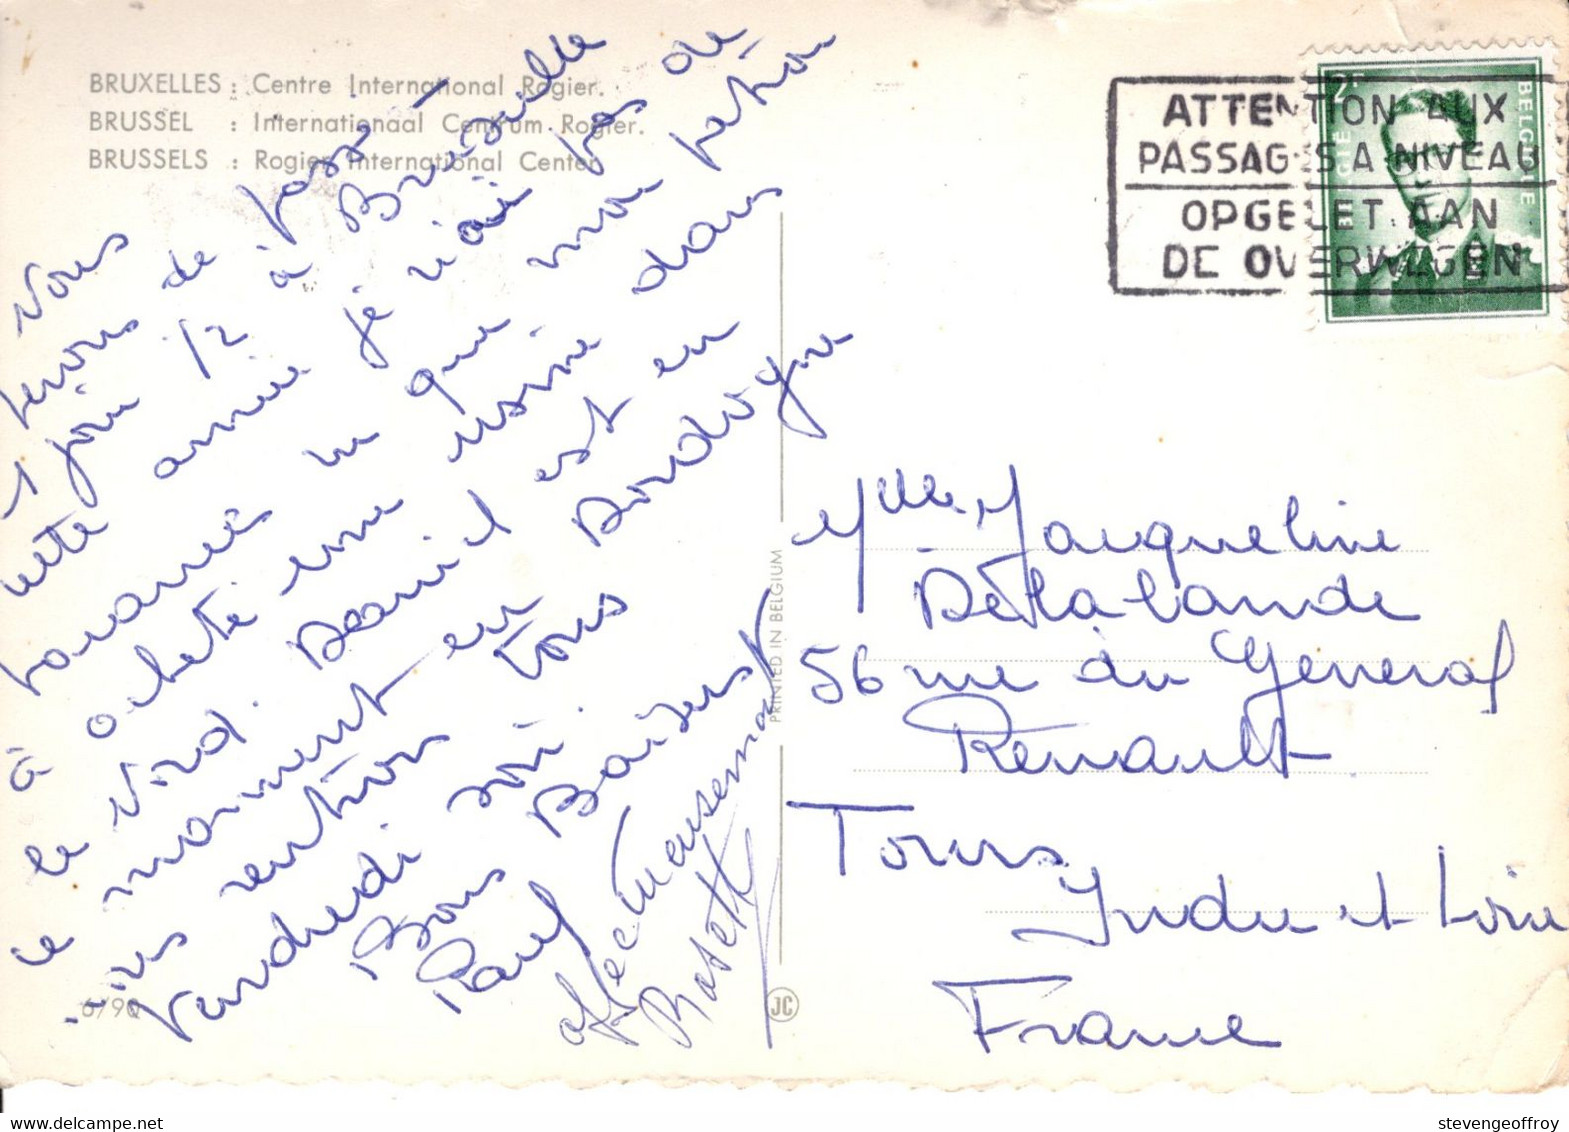 BRUXELLES : Centre International Rogier.
BRUSSEL : Internationaal Centrum Rogier.
BRUSSELS : Rogier International Center.
Nous
venons de passé
1 jour 1/2 à Bruxelle
cette année je n'ai pas de
vacances vu que mon patron
à acheté une usine dans
le Nord. Daniel est en
ce momment en Dordogne
nous rentron tous
Vendredi soir.
Bons Baisers
Paul
affectueusement
6/90
PRINTED IN BELGIUM
JC
2F
BELGIË
BELGIQUE
ATTENTION AUX
PASSAGES A NIVEAU
OPGELET AAN
DE OVERWEGEN
Melle Jacqueline
Delalande
56 rue du General
Renault
Tours
Indre et Loire
France
www.delcampe.net
stevengeoffroy